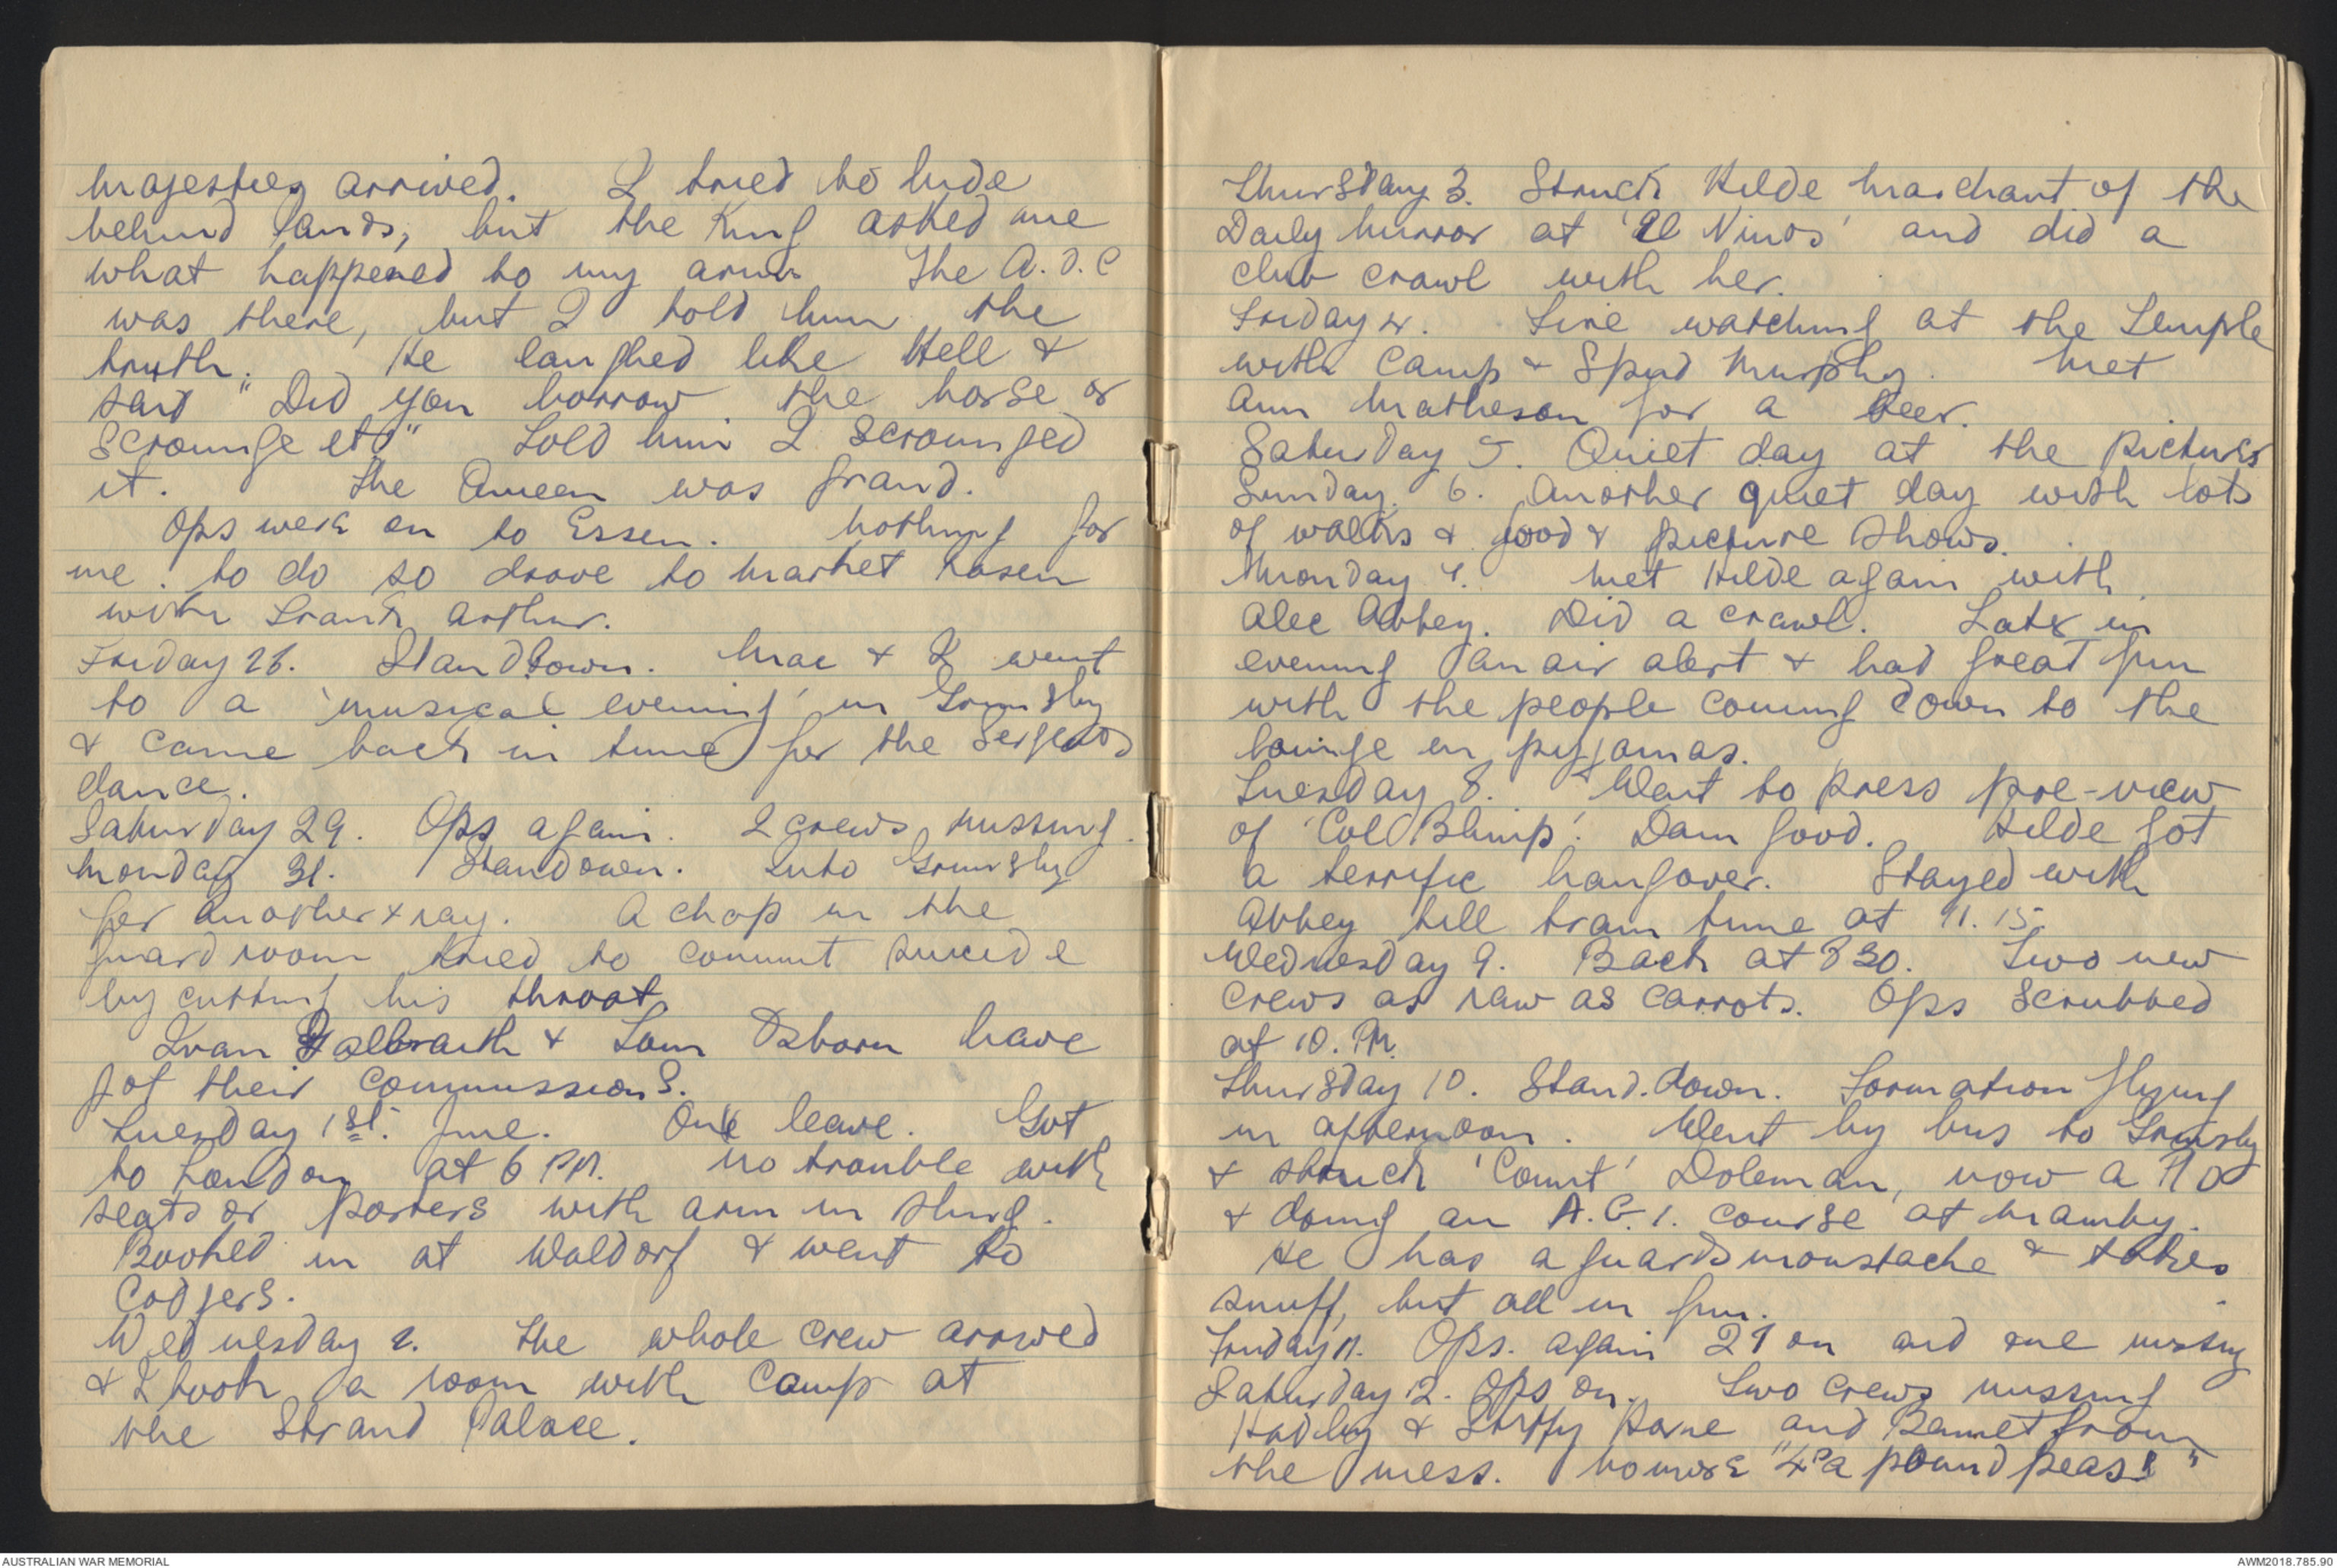 Majesties arrived. I tried to hide
behind Lands, but the King asked me
what happened to my arm. The A.O.C
was there, but I told him the
truth. He laughed like Hell &
said "Did you borrow the horse or
scrounge it?" Told him I scrounged
it. The Queen was grand.
Ops were on to Essen. Nothing for
me to do so drove to Market Rasen
with Frank Arthur.
Friday 28. Stand down. Mac & I went
to a 'musical evening' in Grimsby
& came back in time for the Sergeants
dance.
Saturday 29. Ops again. 2 crews missing.
Monday 31. Standown. Into Grimsby
for another xray. A chap in the
guard room tried to commit suicide
by cutting his throat
Ivan Galbraith & Tom Osborn have
got their commissions.
Tuesday 1st. June. On leave. Got
to London at 6 PM. No trouble with
seats or porters with arm in sling.
Booked in at Waldorf & went to
Codgers.
Wednesday 2. The whole crew arrived
& I took a room with Camp at
the Strand Palace.
Thursday 3. Struck Hilde Marchant of the
Daily Mirror at 'El Ninos' and did a
club crawl with her.
Friday 4. Fire watching at the Temple
with Camp & Spud Murphy. Met
Ann Matheson for a beer.
Saturday 5. Quiet day at the pictures
Sunday. 6. Another quiet day with lots
of walks & food & picture shows.
Monday 7. Met Hilde again with
Alec Abbey. Did a crawl. Later in
evening an air alert & had great fun
with the people coming down to the
lounge in pyjamas.
Tuesday 8. Went to press pre-view
of 'Col Blimp'. Dam good. Hilde got
a terrific hangover. Stayed with
Abbey till train time at 11.15.
Wednesday 9. Back at 830. Two new
crews as raw as carrots. Ops scrubbed
at 10. PM.
Thursday 10. Stand.down. Formation flying
in afternoon. Went by bus to Grimsby
& struck 'Count' Doleman, now a P/O
& doing an A.G.1. course at Manby.
He has a guards moustache & takes
snuff, but all in fun.
Friday 11. Ops. again 27 on and one missing
Saturday 12. Ops on. Two crews missing
Hadley & Steffy Horne and Bennet from
the mess. No more "4D a pound peas!"
AUSTRALIAN WAR MEMORIAL
AWM2018.785.90